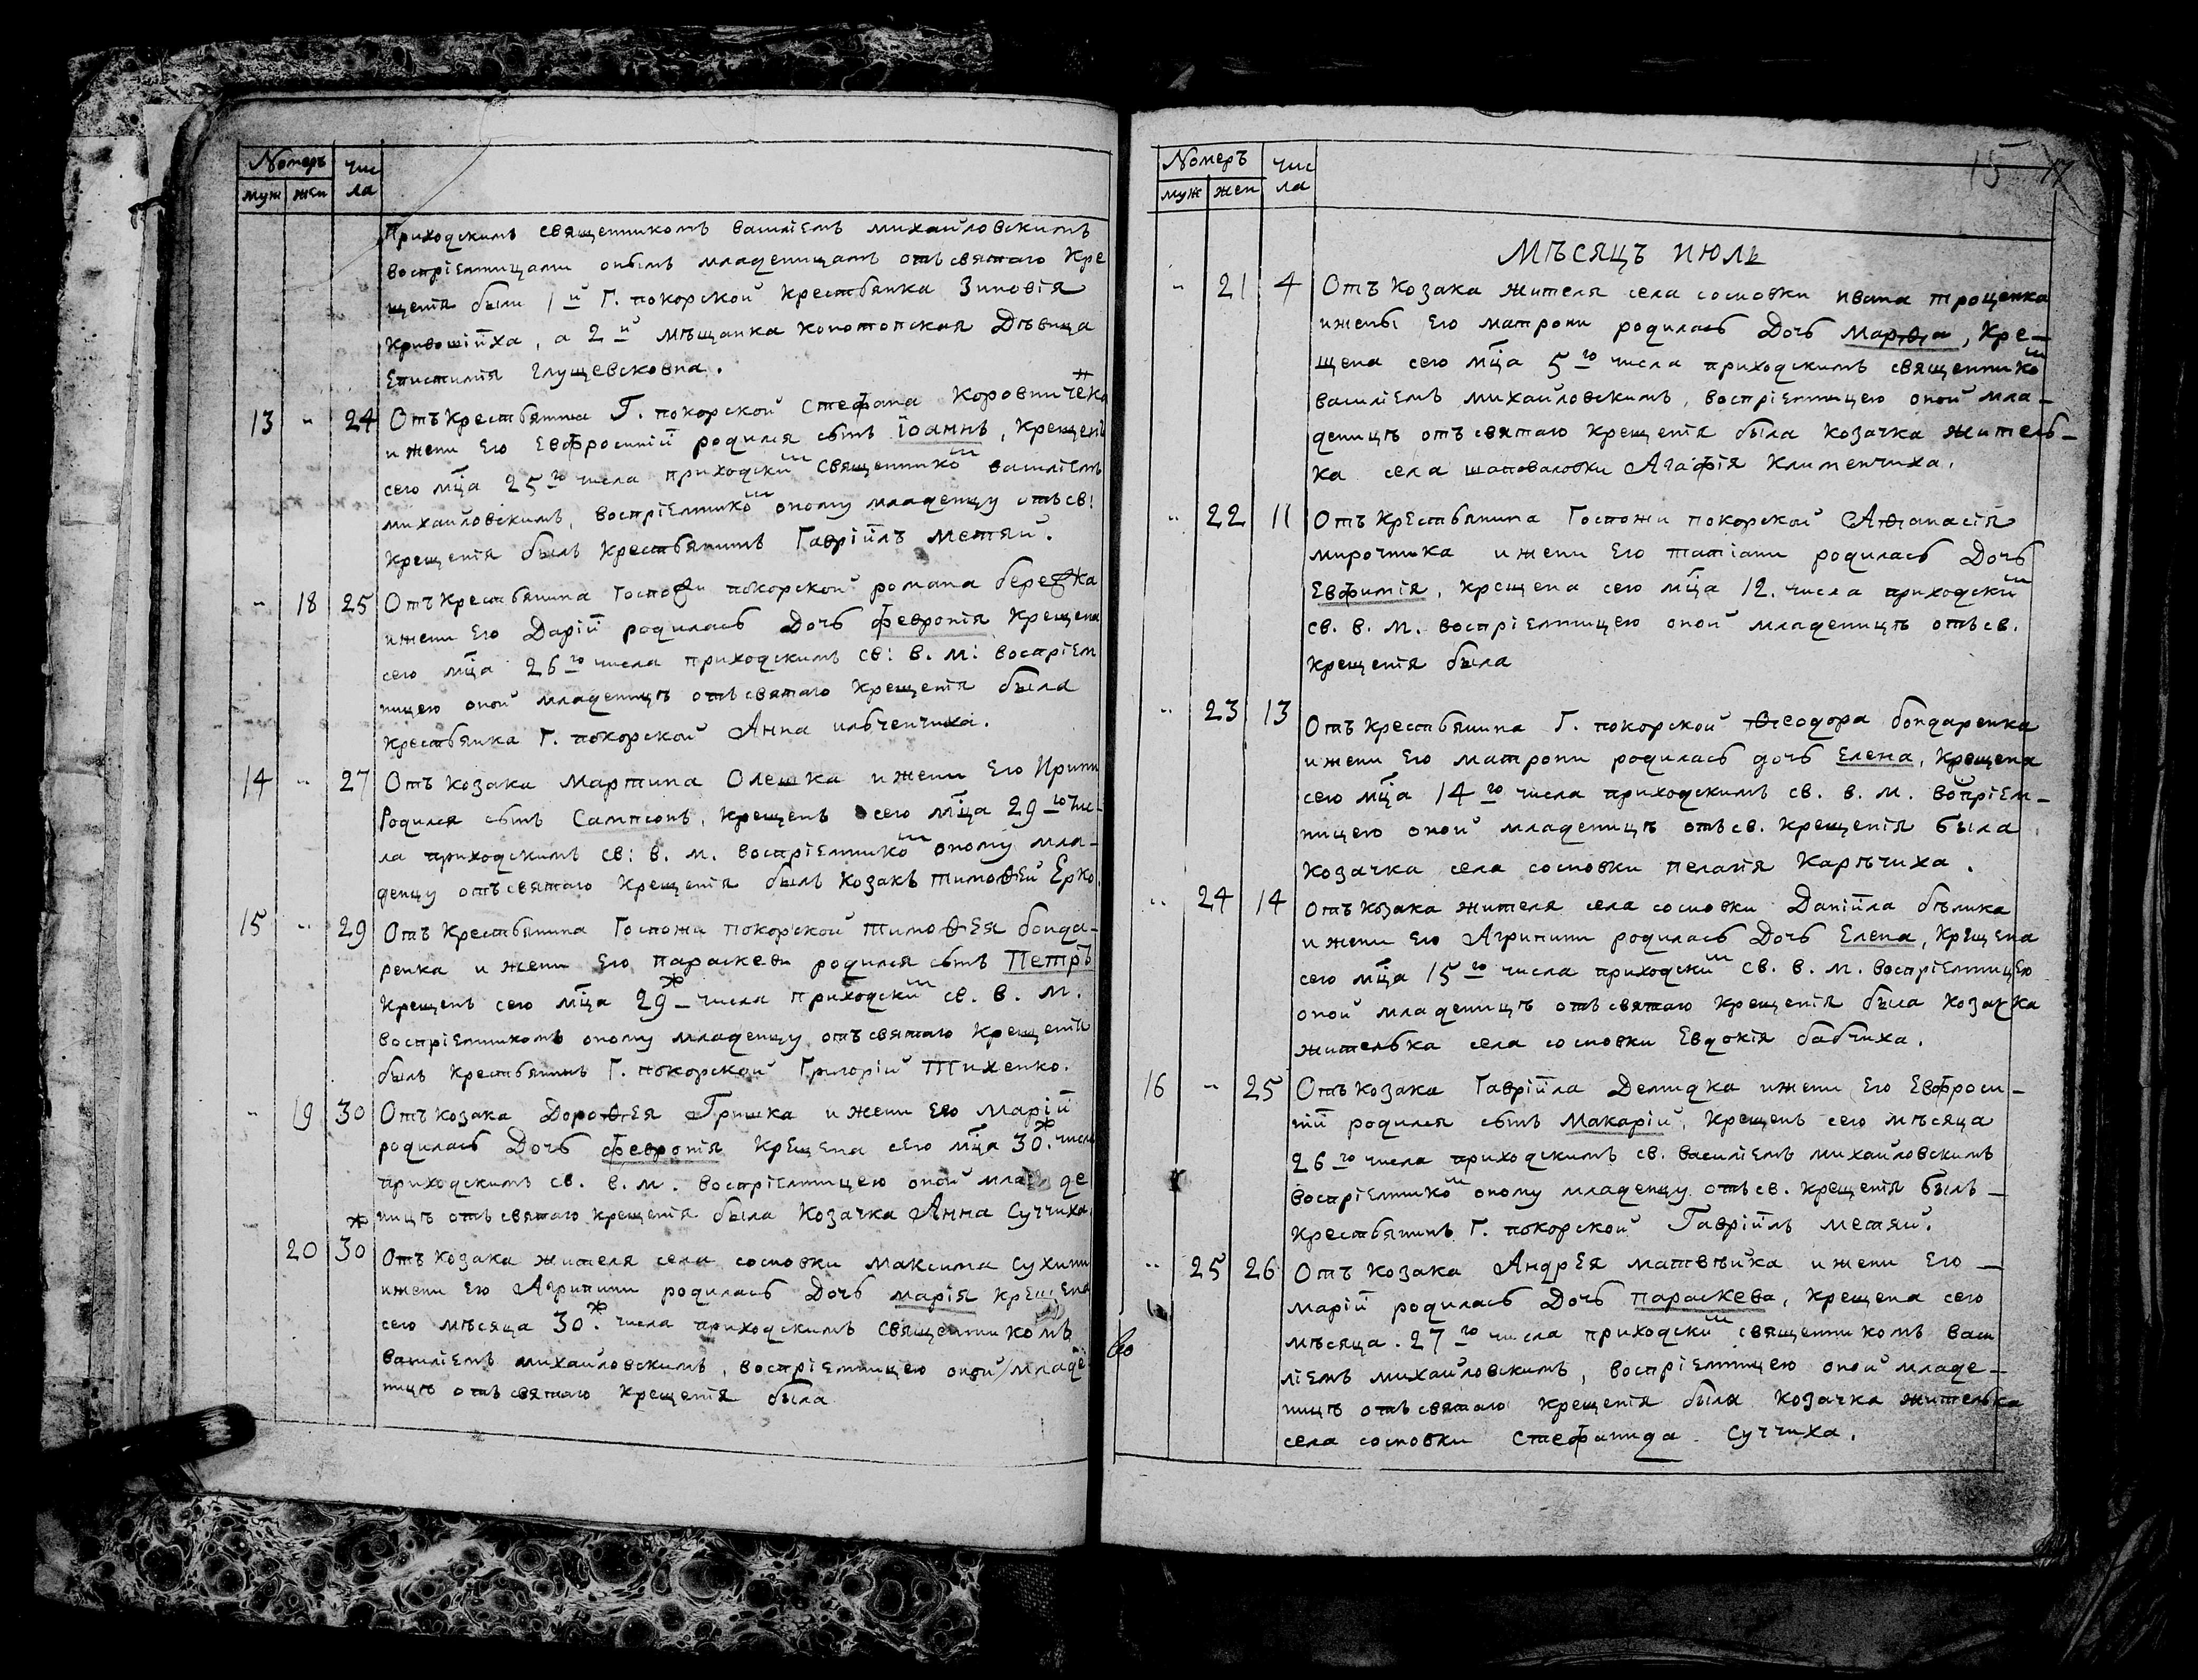 Номеръ чис
муж жен ла
Приходскимъ священникомъ василіемъ михайловскимъ
воспріемницами онымъ младеницамъ отъ святаго Кре
щенія были 1й Г. покорской Крестьянка Зиновія
Кривошіиха, а 2й мѣщанка конотопская Дѣвица
Епистимія Глущевсковна.
13 " 24 Отъ Крестьянина Г. покорской Стефана Коровниченка
и жени Его Евфросиній родился сынъ Іоаннъ, Крещенъ
сего мца 25го числа приходским священником василіемъ
михайловскимъ, воспріемником оному младенцу отъ св:
Крещенія былъ Крестьянинъ Гавріилъ Метяй.
" 18 25 Отъ Крестьянина Госпожи покорской романа бережка
и жени Его Дарій родилась Дочь Февронія Крещена
сего мца 26го числа приходскимъ св: в. м: воспріем
ницею оной младеницѣ отъ святаго Крещенія была
Крестьянка Г. покорской Анна ильченчиха.
14 " 27 Отъ Козака Мартина Олешка и жени Его Ирини
Родился сынъ Сампсонъ, Крещенъ сего мца 29го чис-
ла приходскимъ св: в. м. воспріемником оному мла-
денцу отъ святаго Крещенія былъ Козакъ Тимоѳей Ерко.
15 " 29 Отъ Крестьянина Госпожи покорской Тимоѳея бонда-
ренка и жени Его параскеви родился сынъ Петръ
Крещенъ сего мца 29 числа приходским св. в. м.
воспріемникомъ оному младенцу отъ святаго Крещенія
былъ Крестьянинъ Г. покорской Григорій Тихенко.
" 19 30 Отъ Козака Дороѳея Гришка и жени Его Марій
родилась Дочь Февронія Крещена сего мца 30. числа
приходскимъ св. в. м. воспріемницею оной мла де
ницѣ отъ святаго Крещенія была Козачка Анна Суччиха.
20 30 Отъ Козака жителя села сосновки Максима Сухини
и жени Его Агрипини родилась Дочь марія Крещена
сего мѣсяца 30. числа приходскимъ священникомъ
василіемъ михайловскимъ, воспріемницею оной младе
ницѣ отъ святаго Крещенія была
15 17
Номеръ чис
муж жен ла
Мѣсяцъ июль
" 21 4 Отъ Козака жителя села сосновки ивана троценка
и жены Его матрони родилась Дочь Марѳа, Кре-
щена сего мца 5го числа приходскимъ священником
василіемъ михайловскимъ, воспріемницею оной мла-
деницѣ отъ святаго Крещенія была Козачка житель-
ка села шаповаловки Агафія Клименчиха.
" 22 11 Отъ Крестьянина Госпожи покорской Аѳанасія
мирочника и жени Его татіани родилась Дочь
Евфимія, Крещена сего мца 12. числа приходским
св. в. м. воспріемницею оной младеницѣ отъ св.
Крещенія была
" 23 13 Отъ Крестьянина Г. покорской Ѳеодора бондаренка
и жени Его матрони родилась дочь Елена, Крещена
сего мца 14го числа приходскимъ св. в. м. вопріем-
ницею оной младеницѣ отъ св. Крещенія была
Козачка села сосновки пелагія Карпчиха.
" 24 14 Отъ Козака жителя села сосновки Даніила бѣлика
и жени Его Агрипини родилась Дочь Елена, Крещена
сего мца 15го числа приходским св. в. м. воспріемницею
оной младеницѣ отъ святаго Крещенія была Козачка
жителька села сосновки Евдокія бабчиха.
16 " 25 Отъ Козака Гавріила Демидка и жени Его Евфроси-
ніи родился сынъ Макарій, Крещенъ сего мѣсяца
26го числа приходскимъ св. василіемъ михайловскимъ
воспріемником оному младенцу отъ св. Крещенія былъ -
Крестьянинъ Г. покорской Гавріилъ метяй.
" 25 26 Отъ Козака Андрея матвѣйка и жени Его -
марій родилась Дочь параскева, Крещена сего
мѣсяца. 27го числа приходским священникомъ васи
ліемъ михайловскимъ, воспріемницею оной младе-
ницѣ отъ святаго Крещенія была Козачка жителька
села сосновки Стефанида Суччиха.